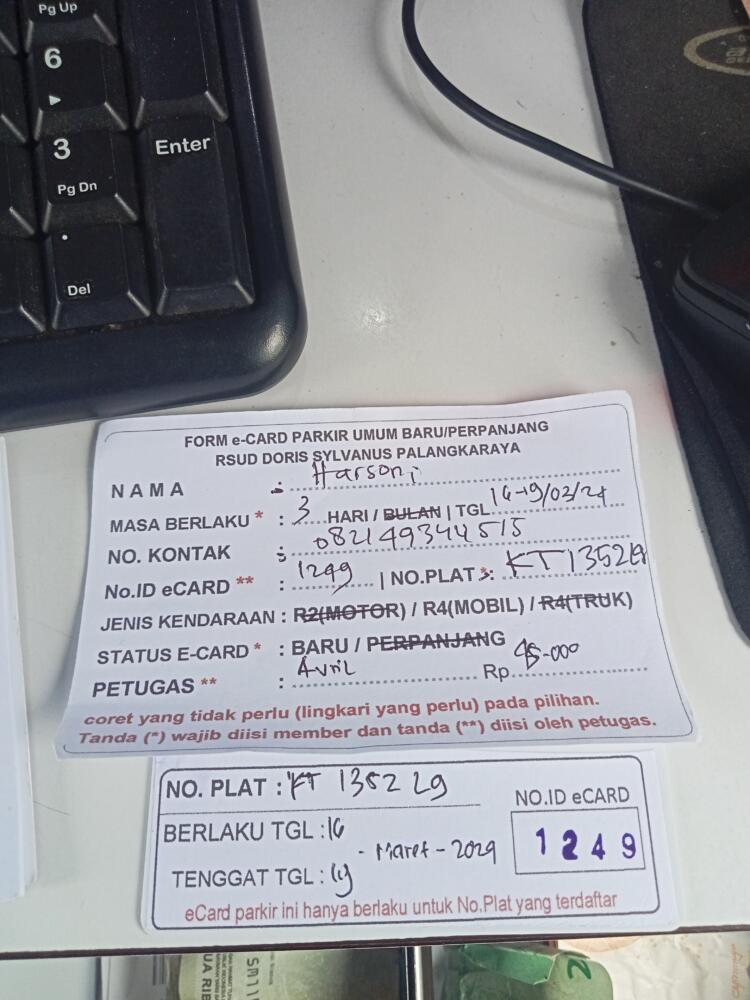 Pg Up
6
3
Pg Dn
Enter
.
Del
FORM e-CARD PARKIR UMUM BARU/PERPANJANG
RSUD DORIS SYLVANUS PALANGKARAYA
NAMA : Harsoni
MASA BERLAKU * : 3 HARI / BULAN | TGL 16-19/03/24
NO. KONTAK : 082149344515
No.ID eCARD ** : 1249 | NO.PLAT * : KT 1352 LG
JENIS KENDARAAN : R2(MOTOR) / R4(MOBIL) / R4(TRUK)
STATUS E-CARD * : BARU / PERPANJANG
PETUGAS ** : Avril Rp 45.000
coret yang tidak perlu (lingkari yang perlu) pada pilihan.
Tanda (*) wajib diisi member dan tanda (**) diisi oleh petugas.
NO. PLAT : KT 1352 LG
NO.ID eCARD
BERLAKU TGL : 16
1249
- Maret - 2024
TENGGAT TGL : 19
eCard parkir ini hanya berlaku untuk No.Plat yang terdaftar